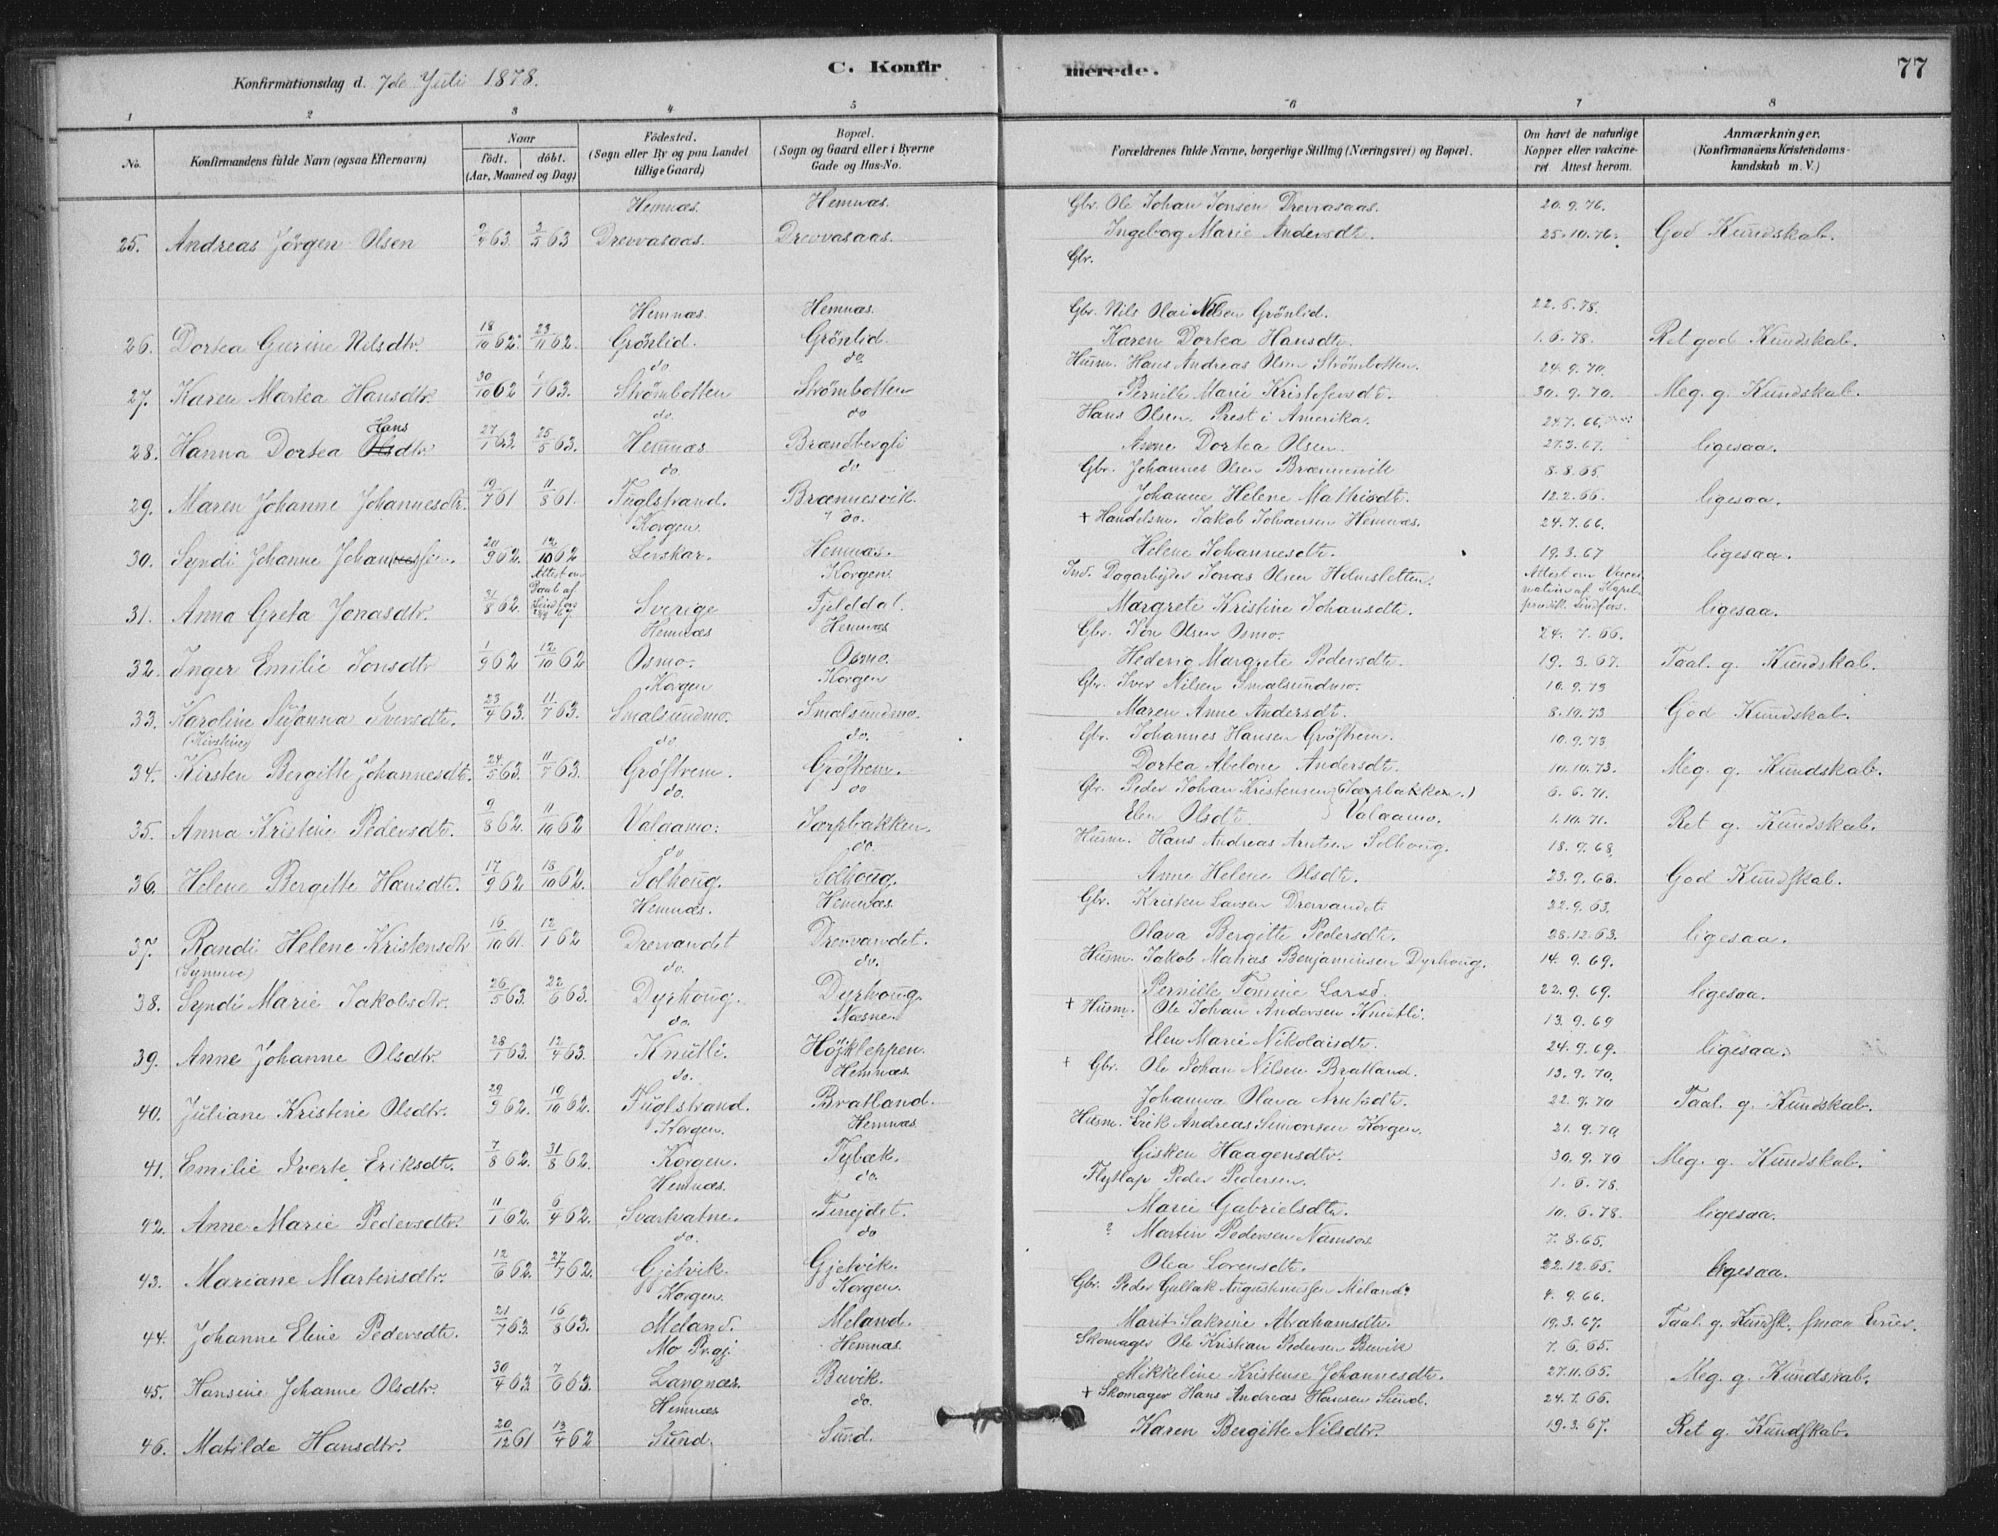 Konfirmationsdag d. 7de Juli 1878.
C. Konfirmerede.
77
1 2 3 4 5 6 7 8
No.
Konfirmandens fulde Navn (ogsaa Efternavn)
Naar
födt. döbt.
(Aar, Maaned og Dag)
Födested.
(Sogn eller By og paa Landet tillige Gaard)
Bopæl.
(Sogn og Gaard eller i Byerne Gade og Hus-No.
Forældrenes fulde Navne, borgerlige Stilling (Næringsvei) og Bopæl.
Om havt de naturlige Kopper eller vakcineret. Attest herom.
Anmærkninger.
(Konfirmandens Kristendomskundskab m. V.)
Hemnæs. Hemnæs. Gbr. Ole Johan Jonsen Drevvasaas. 20.9.76.
25. Andreas Jörgen Olsen 2/4 63 3/5 63 Drevvasaas. Drevvasaas. Ingeborg Marie Andersdt. 25.10.76. God Kundskab.
Gbr.
Hemnæs. Hemnæs. Gbr. Nils Olai Nilsen Grönlid. 22.5.78.
26. Dortea Gurine Nilsdtr. 18/10 62 23/11 62. Grönlid. Grönlid. Karen Dortea Hansdt. 1.6.78. Ret god Kundskab.
do. do. Husm. Hans Andreas Olsen Strömbotten. 24.9.70.
27. Karen Martea Hansdtr. 30/10 62 1/1 63. Strömbotten Strömbotten Pernille Marie Kristofersdt. 30.9.70. Meg. g. Kundskab.
do. do Hans Olsen, Prest i Amerika. 24.7.66.
28. Hanna Dortea Hansdtr. 27/1 63. 25/5 63. Hemnæs. Brændbergli Anne Dortea Olsen. 27.3.67. ligesaa.
do. do Gbr. Johannes Olsen Brænnevik 8.8.65
29. Maren Johanne Johannesdtr. 19/7 61 11/8 61. Fuglstrand. Brænnesvik. Johanne Helene Mathisdt. 12.2.66. ligesaa.
Korgen. do. + Handelsm. Jakob Johansen Hemnæs. 24.7.66.
30. Syndi Johanne Johannessen. 20/9 62 12/10 62 Leirskar. Hemnæs. Helene Johannesdt. 19.3.67 ligesaa.
Korgen. Ind. Dagarbejder Jonas Olsen Holmsletten.
31. Anna Greta Jonasdtr. 31/8 62. Sverige Fjelddal. Margrete Kristine Johansdt. ligesaa.
Hemnæs Hemnæs Gbr. Jon Olsen Osmo. 24.7.66.
32. Inger Emilie Jonsdtr 1/9 62 12/10 62 Osmo. Osmo. Hedevig Margrete Pedersdt. 19.3.67. Taal. g. Kundskab.
Korgen Korgen Gbr. Iver Nilsen Smalsundmo. 10.9.73
33. Karoline Susanna Iversdt. 23/4 63. 11/7 63. Smalsundmo. Smalsundmo. Maren Anne Andersdt. 8.10.73 God Kundskab.
do do. Gbr. Johannes Hansen Gröftrem. 10.9.73
34. Kirsten Bergitte Johannesdt. 24/5 63. 11/7 63. Gröftrem. Gröftrem. Dortea Abelone Andersdt. 10.10.73. Meg. g. Kundskab.
do. do Gbr. Peder Johan Kristensen (Tærpbakken.) 6.6.71.
35. Anna Kristine Pedersdt. 9/8 62. 11/10 62 Valaamo. Tærpbakken. Elen Olsdt. Valaamo. 1.10.71. Ret g. Kundskab.
do do Husm. Hans Andreas Arntsen Solhoug. 18.9.68
36. Helene Bergitte Hansdt. 17/9 62 18/10 62. Solhoug. Solhoug. Anne Helene Olsdt. 23.9.68. God Kundskab.
Hemnæs. Hemnæs. Gbr. Kristen Larsen Drevvandet. 22.9.63.
37. Randi Helene Kristensdtr 16/10 61. 12/1 62 Drevvandet Drevvandet. Olava Bergitte Pedersdt. 28.12.63. ligesaa.
(Synnve) do. do. Husm. Jakob Matias Benjaminsen Dyrhoug. 14.9.69.
38. Syndi Marie Jakobsdtr. 26/5 63. 22/6 63. Dyrhoug. Dyrhoug. Pernille Tomine Larsd. 22.9.69. ligesaa.
do. Næsne. + Husm. Ole Johan Andersen Knutli. 13.9.69
39. Anne Johanne Olsdtr. 28/1 63. 12/4 63. Knutli. Höjkleppen Elen Marie Nikolaisdt. 24.9.69. ligesaa.
do. Hemnæs. + Gbr. Ole Johan Nilsen Bratland. 13.9.70.
40. Juliane Kristine Olsdtr. 29/9 62. 19/10 62. Fuglstrand. Bratland. Johanna Olava Arntsdt. 22.9.70 Taal. g. Kundskab.
Korgen. Hemnæs Husm. Erik Andreas Simonsen Korgen. 21.9.70
41. Emilie Iverte Eriksdt. 7/8 62. 31/8 62. Korgen. Tybæk. Gisken Haagensdtr. 30.9.70 Meg. g. Kundskab.
Hemnæs. do. Flytlap Peder Pedersen. 1.6.78.
42. Anne Marie Pedersdtr. 11/1 62. 6/4 62. Svartvatne. Finejdet. Marie Gabrielsdt. 10.6.78. ligesaa.
do. do ? Martin Pedersen Namsos. 7.8.65.
43. Mariane Martensdtr. 12/6 62. 27/7 62. Gjetvik. Gjetvik. Olea Lorensdt. 22.12.65. ligesaa.
Korgen. Korgen. Gbr. Peder Gullak Augustinussen Meland. 4.9.66.
44. Johanne Eline Pedersdt. 21/7 63. 16/8 63. Meland. Meland. Marit Sakrine Abrahamsdt. 19.3.67. Taal. g. Kundsk. smaa Evner.
Mo Præj. Hemnæs. Skomager Ole Kristian Pedersen Buvik 7.6.65.
45. Hansine Johanne Olsdtr. 30/4 63 7/6 63. Langnæs. Buvik. Mikkeline Kristense Johannesdt. 27.11.65. Meg. g. Kundskab.
Hemnæs do. + Skomager Hans Andreas Hansen Sund. 24.7.66.
46. Matilde Hansdtr. 20/12 61 13/4 62 Sund. Sund. Karen Bergitte Nilsdtr. 19.3.67. Ret g. Kundskab.